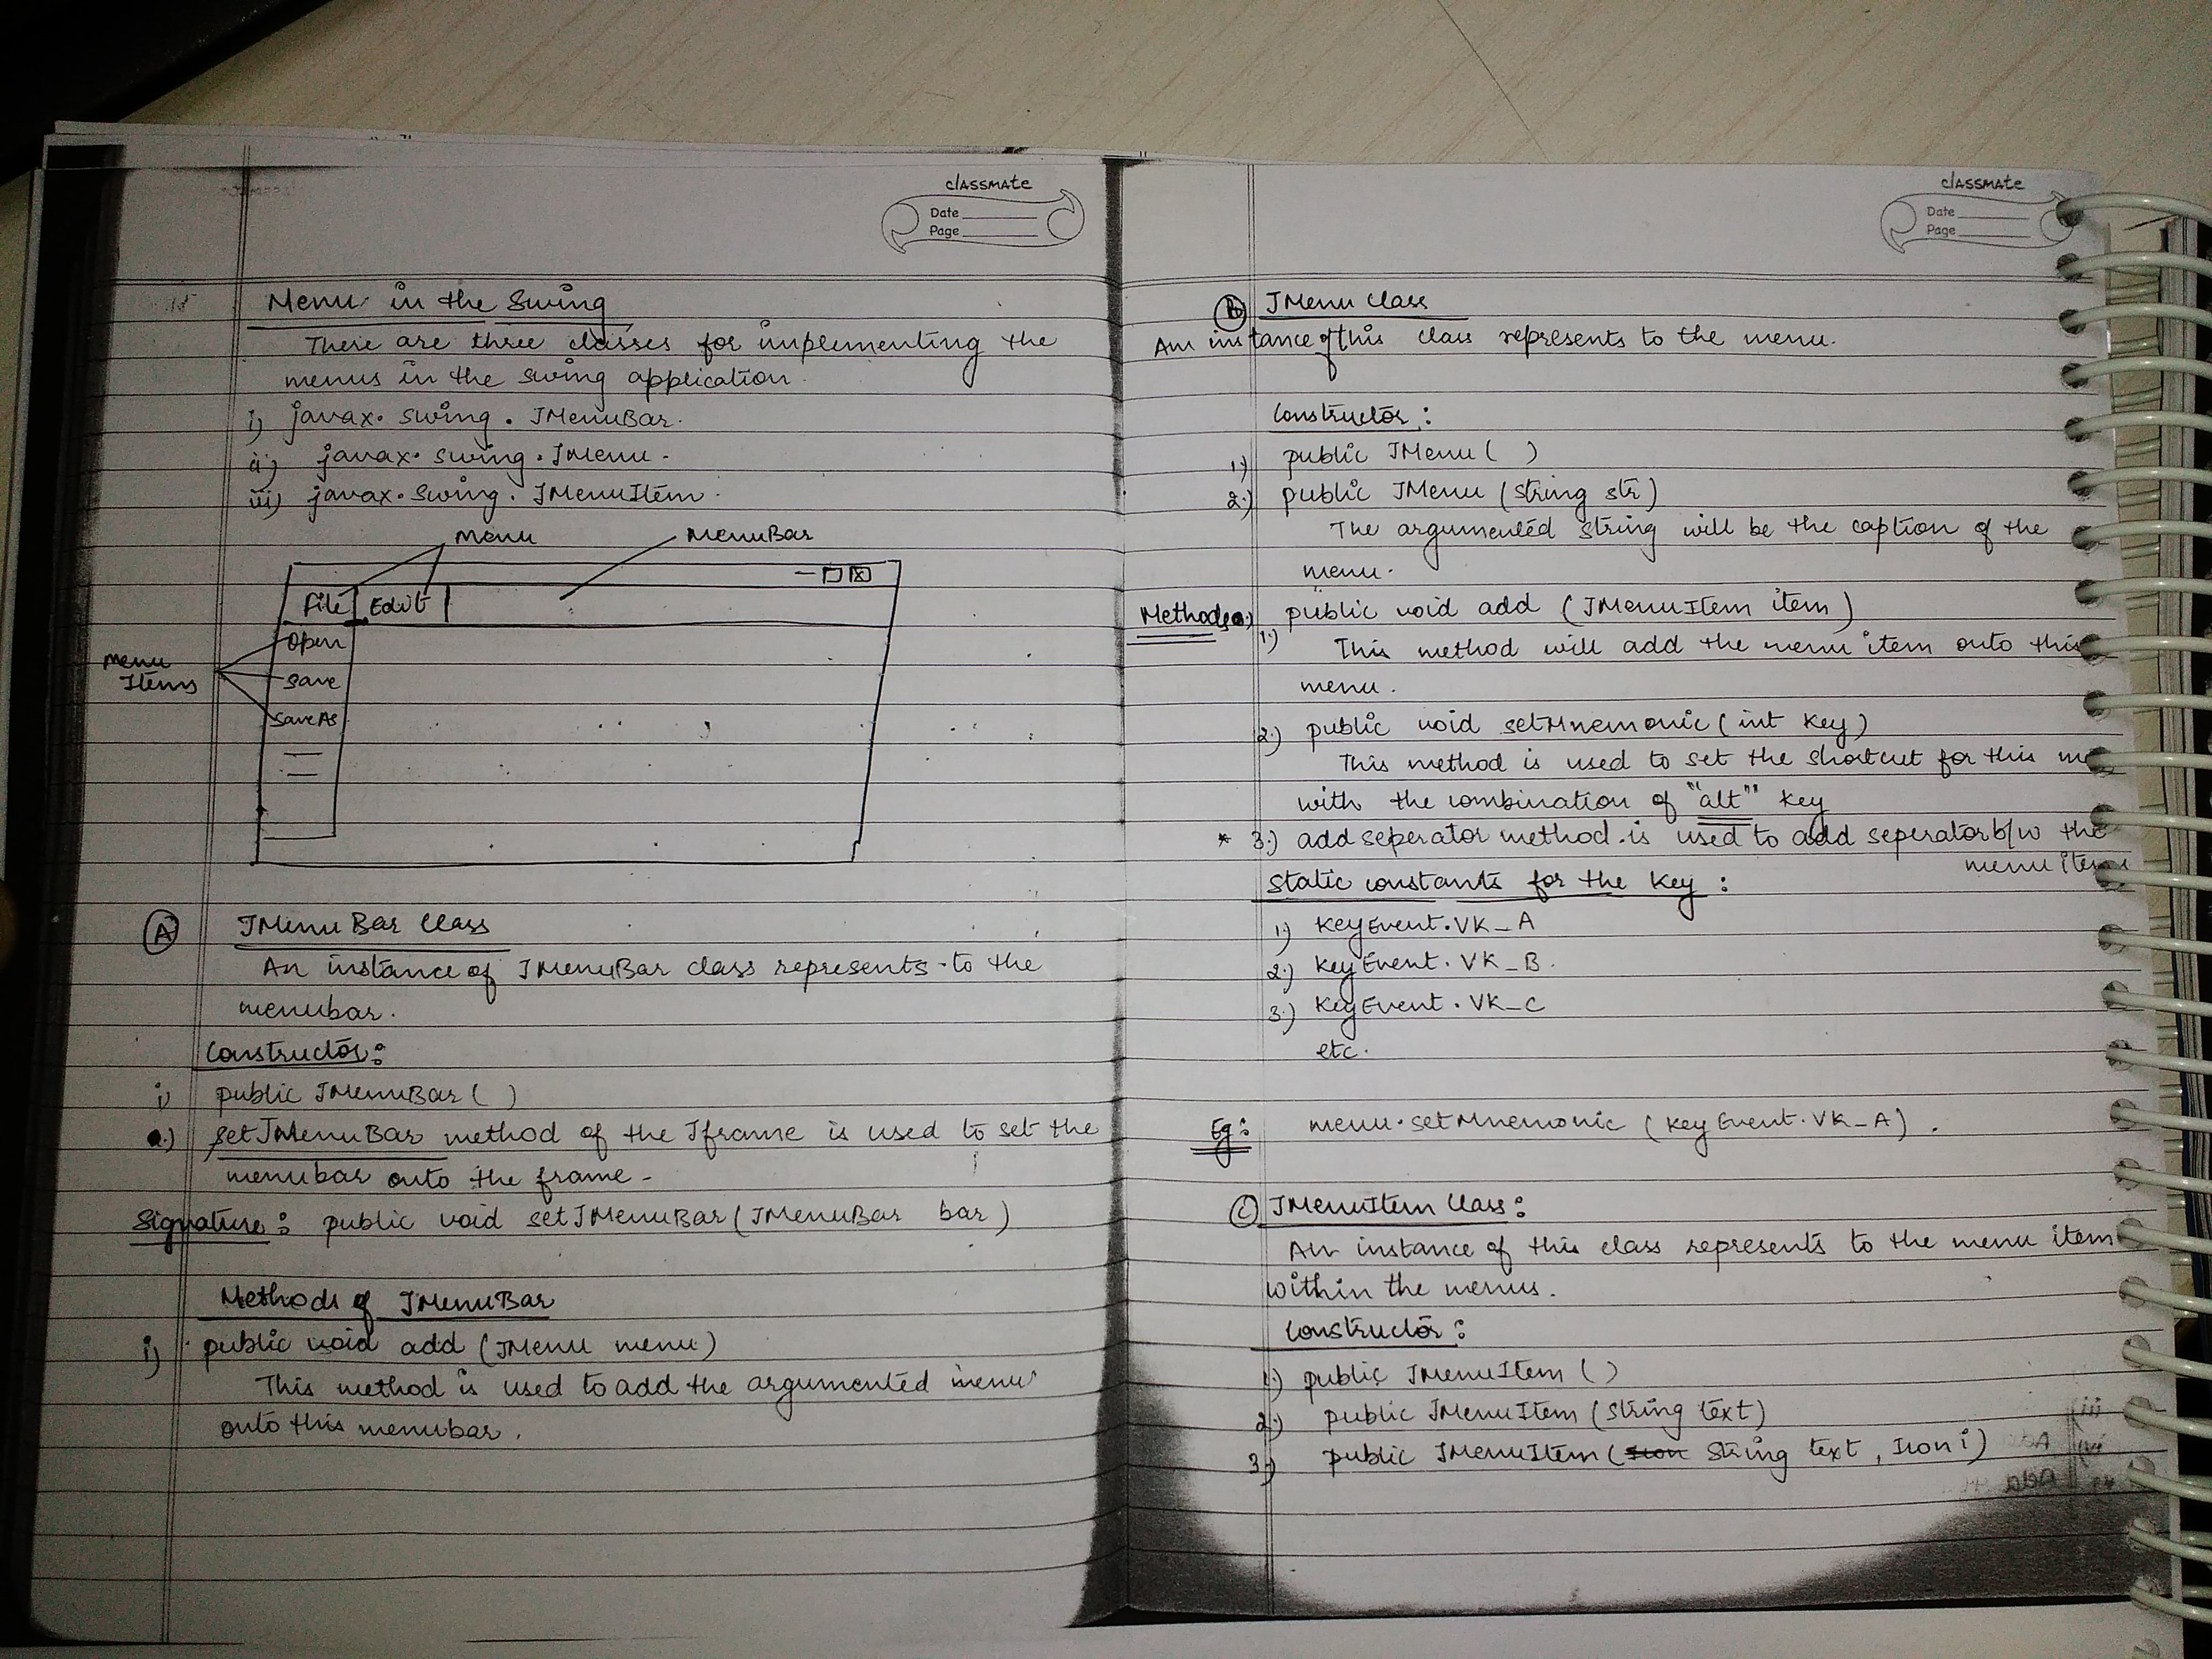 classmate
Date
Page
Menu in the Swing
There are three classes for implementing the
menus in the swing application.
i) javax.swing.JMenuBar.
ii) javax.swing.JMenu.
iii) javax.swing.JMenuItem.
Menu MenuBar
File Edit
Open
Menu
Items
Save
SaveAs
A JMenuBar Class
An instance of JMenuBar class represents to the
menubar.
Constructor:
i) public JMenuBar( )
setJMenuBar method of the Jframe is used to set the
menubar onto the frame.
Signature: public void setJMenuBar(JMenuBar bar)
Methods of JMenuBar
i) public void add (JMenu menu)
This method is used to add the argumented menu
onto this menubar.
classmate
Date
Page
B JMenu Class
An instance of this class represents to the menu.
Constructor:
1) public JMenu( )
2.) public JMenu (String str)
The argumented string will be the caption of the
menu.
Methods public void add (JMenuItem item)
1.) This method will add the menu item onto this
menu.
2.) public void setMnemonic(int key)
This method is used to set the shortcut for this
with the combination of "alt" key
* 3.) add seperator method is used to add seperator b/w the
menu item
Static constants for the key:
1) KeyEvent.VK_A
2.) KeyEvent.VK_B.
3.) KeyEvent.VK_C
etc.
Eg: menu.setMnemonic (KeyEvent.VK_A).
C JMenuItem Class:
An instance of this class represents to the menu item
within the menus.
Constructor:
1) public JMenuItem ( )
2.) public JMenuItem (String text)
3.) public JMenuItem (String text, Icon i)